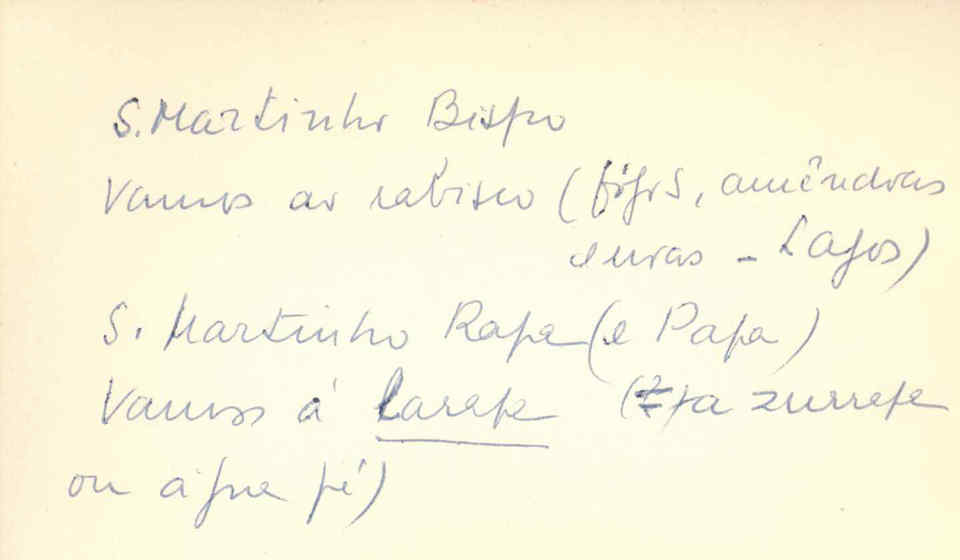 S. Martinho Bispo
Vamos ao rabisco (figos, amêndoas
e uvas - Lagos)
S. Martinho Rapa (e Papa)
Vamos á larapa (a zurrapa
ou água pé)